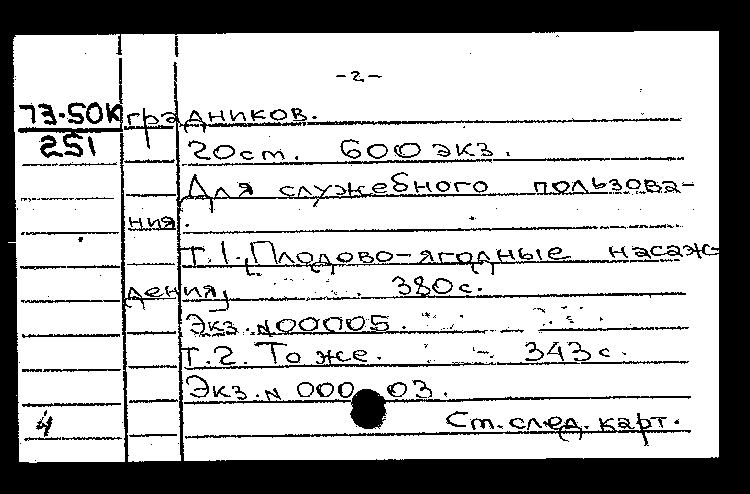 -2-
73-50К градников.
251
20см. 600 экз.
Для служебного пользова-
ния.
т.1. [Плодово-ягодные насаж-
дения] 380с.
Экз.№00005.
Т.2. То же. - 343с.
Экз.№ 000 03.
4 См.след.карт.